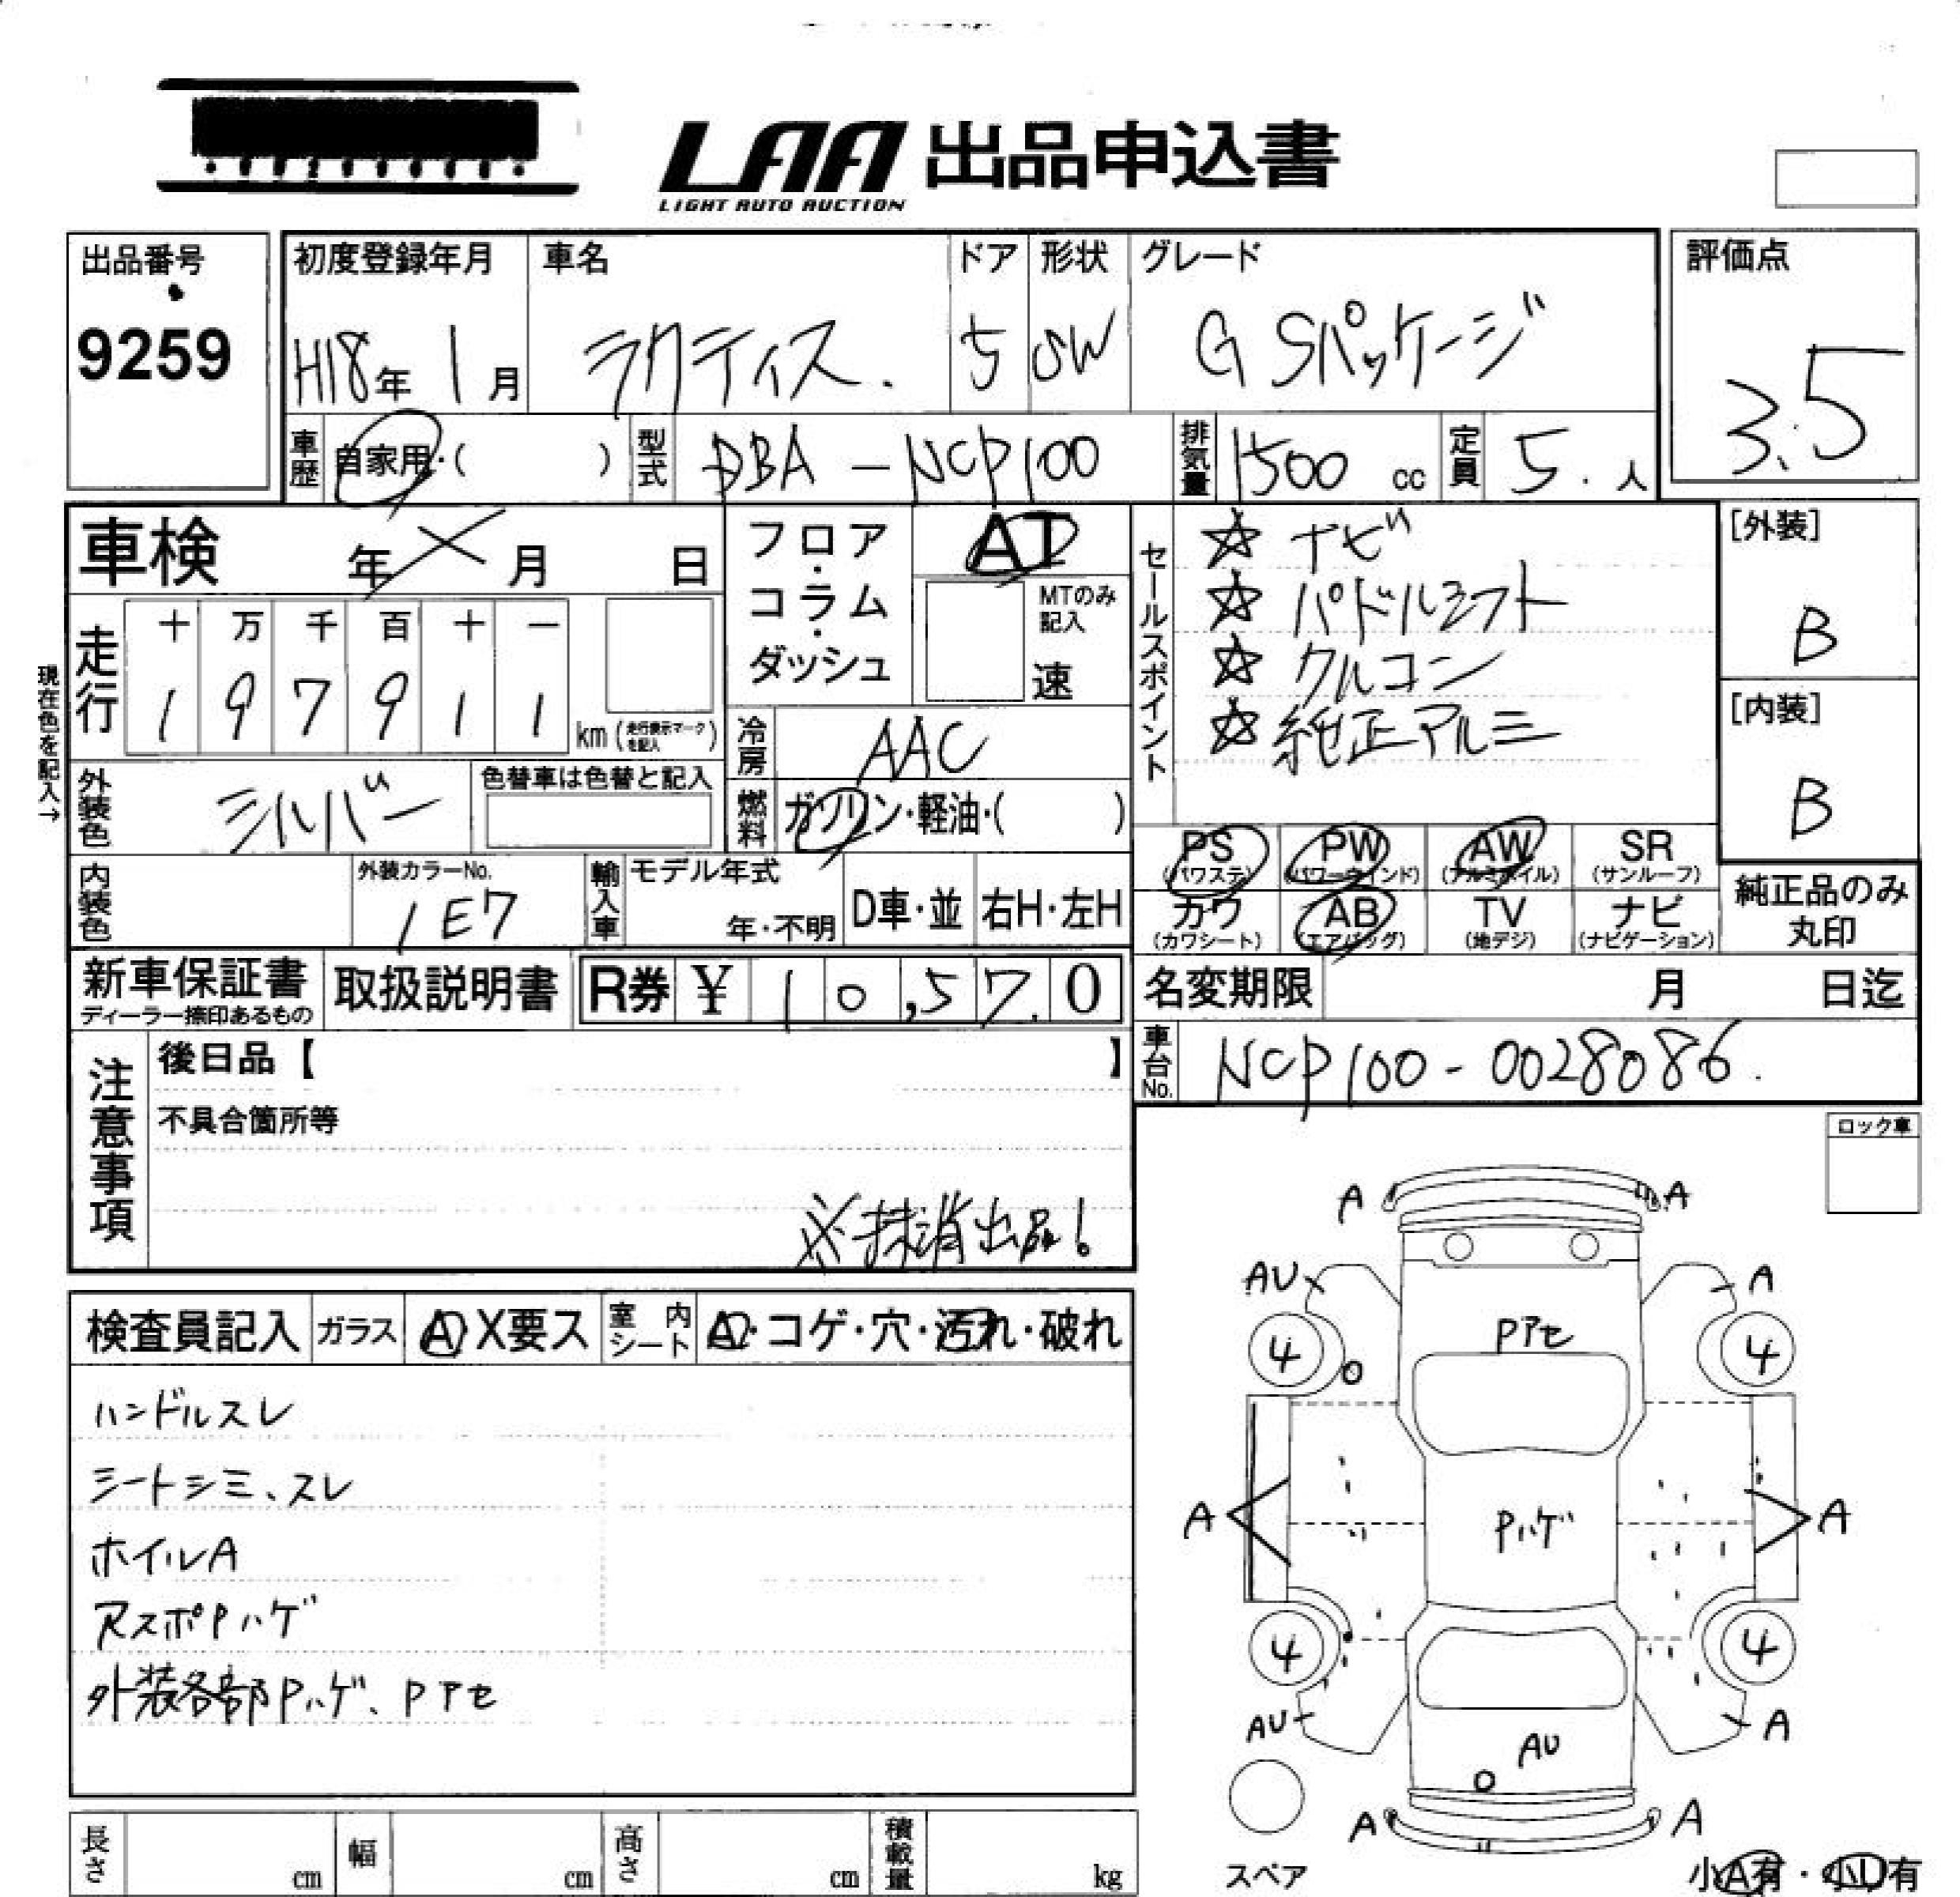 LAA 出品申込書
LIGHT AUTO AUCTION
出品番号
9259
初度登録年月
H18年 1月
車名
ラクティス.
ドア
5
形状
SW
グレード
G Sパッケージ
評価点
3.5
車歴
自家用・( )
型式
DBA-NCP100
排気量
1500 cc
定員
5. 人
車検 年 × 月 日
走行
十 万 千 百 十 一
1 9 7 9 1 1
km(走行表示マークを記入)
現在色を記入→
フロア・コラム・ダッシュ
AT
MTのみ記入
速
冷房
AAC
燃料
ガソリン・軽油・( )
セールスポイント
☆ ナビ
☆ パドルシフト
☆ クルコン
☆ 純正アルミ
[外装]
B
[内装]
B
外装色
シルバー
色替車は色替と記入
内装色
外装カラーNo.
1E7
輸入車
モデル年式
年・不明
D車・並
右H・左H
PS
(パワステ)
PW
(パワーウインド)
AW
(アルミホイル)
SR
(サンルーフ)
カワ
(カワシート)
AB
(エアバッグ)
TV
(地デジ)
ナビ
(ナビゲーション)
純正品のみ
丸印
新車保証書
ディーラー捺印あるもの
取扱説明書
R券 ¥ 10,570
名変期限 月 日迄
車台No.
NCP100-0028086.
注意事項
後日品【 】
不具合箇所等
※抹消出品!
ロック車
検査員記入
ガラス
A X要ス
室内シート
A・コゲ・穴・汚れ・破れ
ハンドルスレ
シートシミ、スレ
ホイルA
RスポPハゲ
外装各部Pハゲ、Pアセ
A A
AU A
Pアセ
4 4
A Pハゲ A
4 4
AU A
AU
A A
スペア
小A有・小U有
長さ cm
幅 cm
高さ cm
積載量 kg